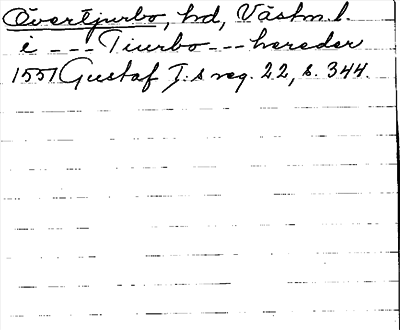 Övertjurbo, hd, Västm l.
i --- Tiurbo --- hereder
1551 Gustaf I:s reg. 22, s. 344.